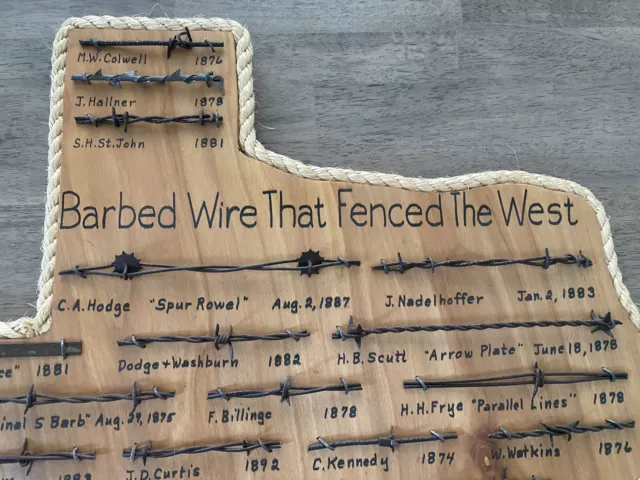 M.W. Colwell 1876
J. Hallner 1878
S.H. St. John 1881
Barbed Wire That Fenced The West
C.A. Hodge "Spur Rowel" Aug. 2, 1887
J. Nadelhoffer Jan. 2, 1883
1881
Dodge + Washburn 1882
H.B. Scutt "Arrow Plate" June 18, 1878
S Barb" Aug. 29, 1875
F. Billings 1878
H.H. Frye "Parallel Lines" 1878
1883
J.D. Curtis 1892
C. Kennedy 1874
W. Watkins 1876